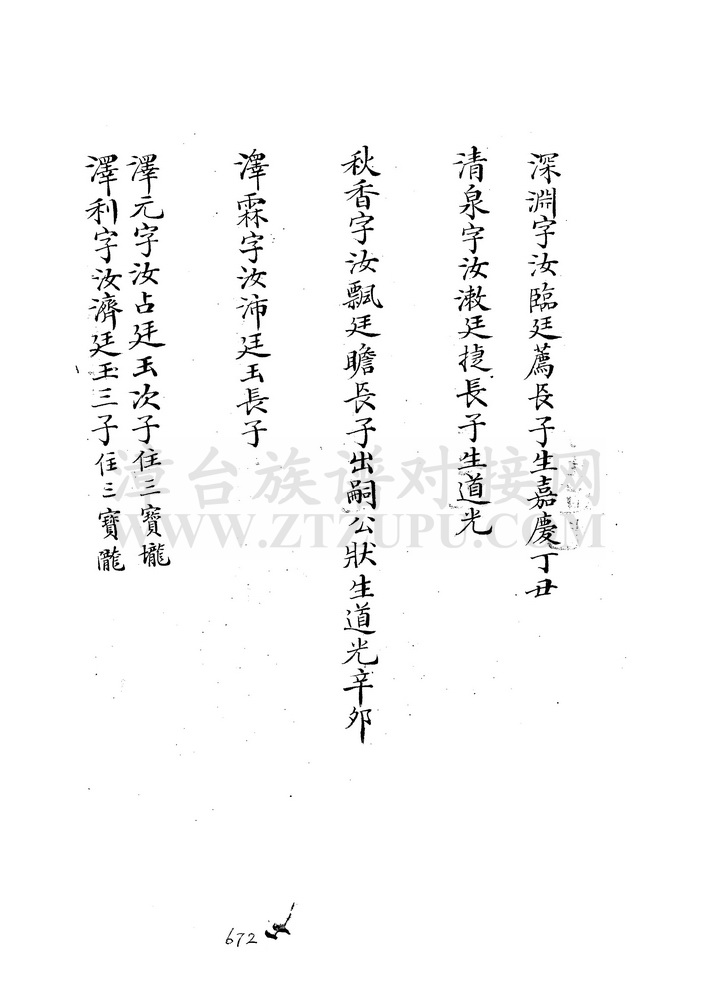 深淵字汝臨廷薦長子生嘉慶丁丑
清泉字汝漱廷捷長子生道光
秋香字汝飄廷瞻長子出嗣公狀生道光辛卯
澤霖字汝沛廷玉長子
澤元字汝占廷玉次子住三寶壠
澤利字汝濟廷玉三子住三寶隴
漳台族谱对接网
WWW.ZTZUPU.COM
672